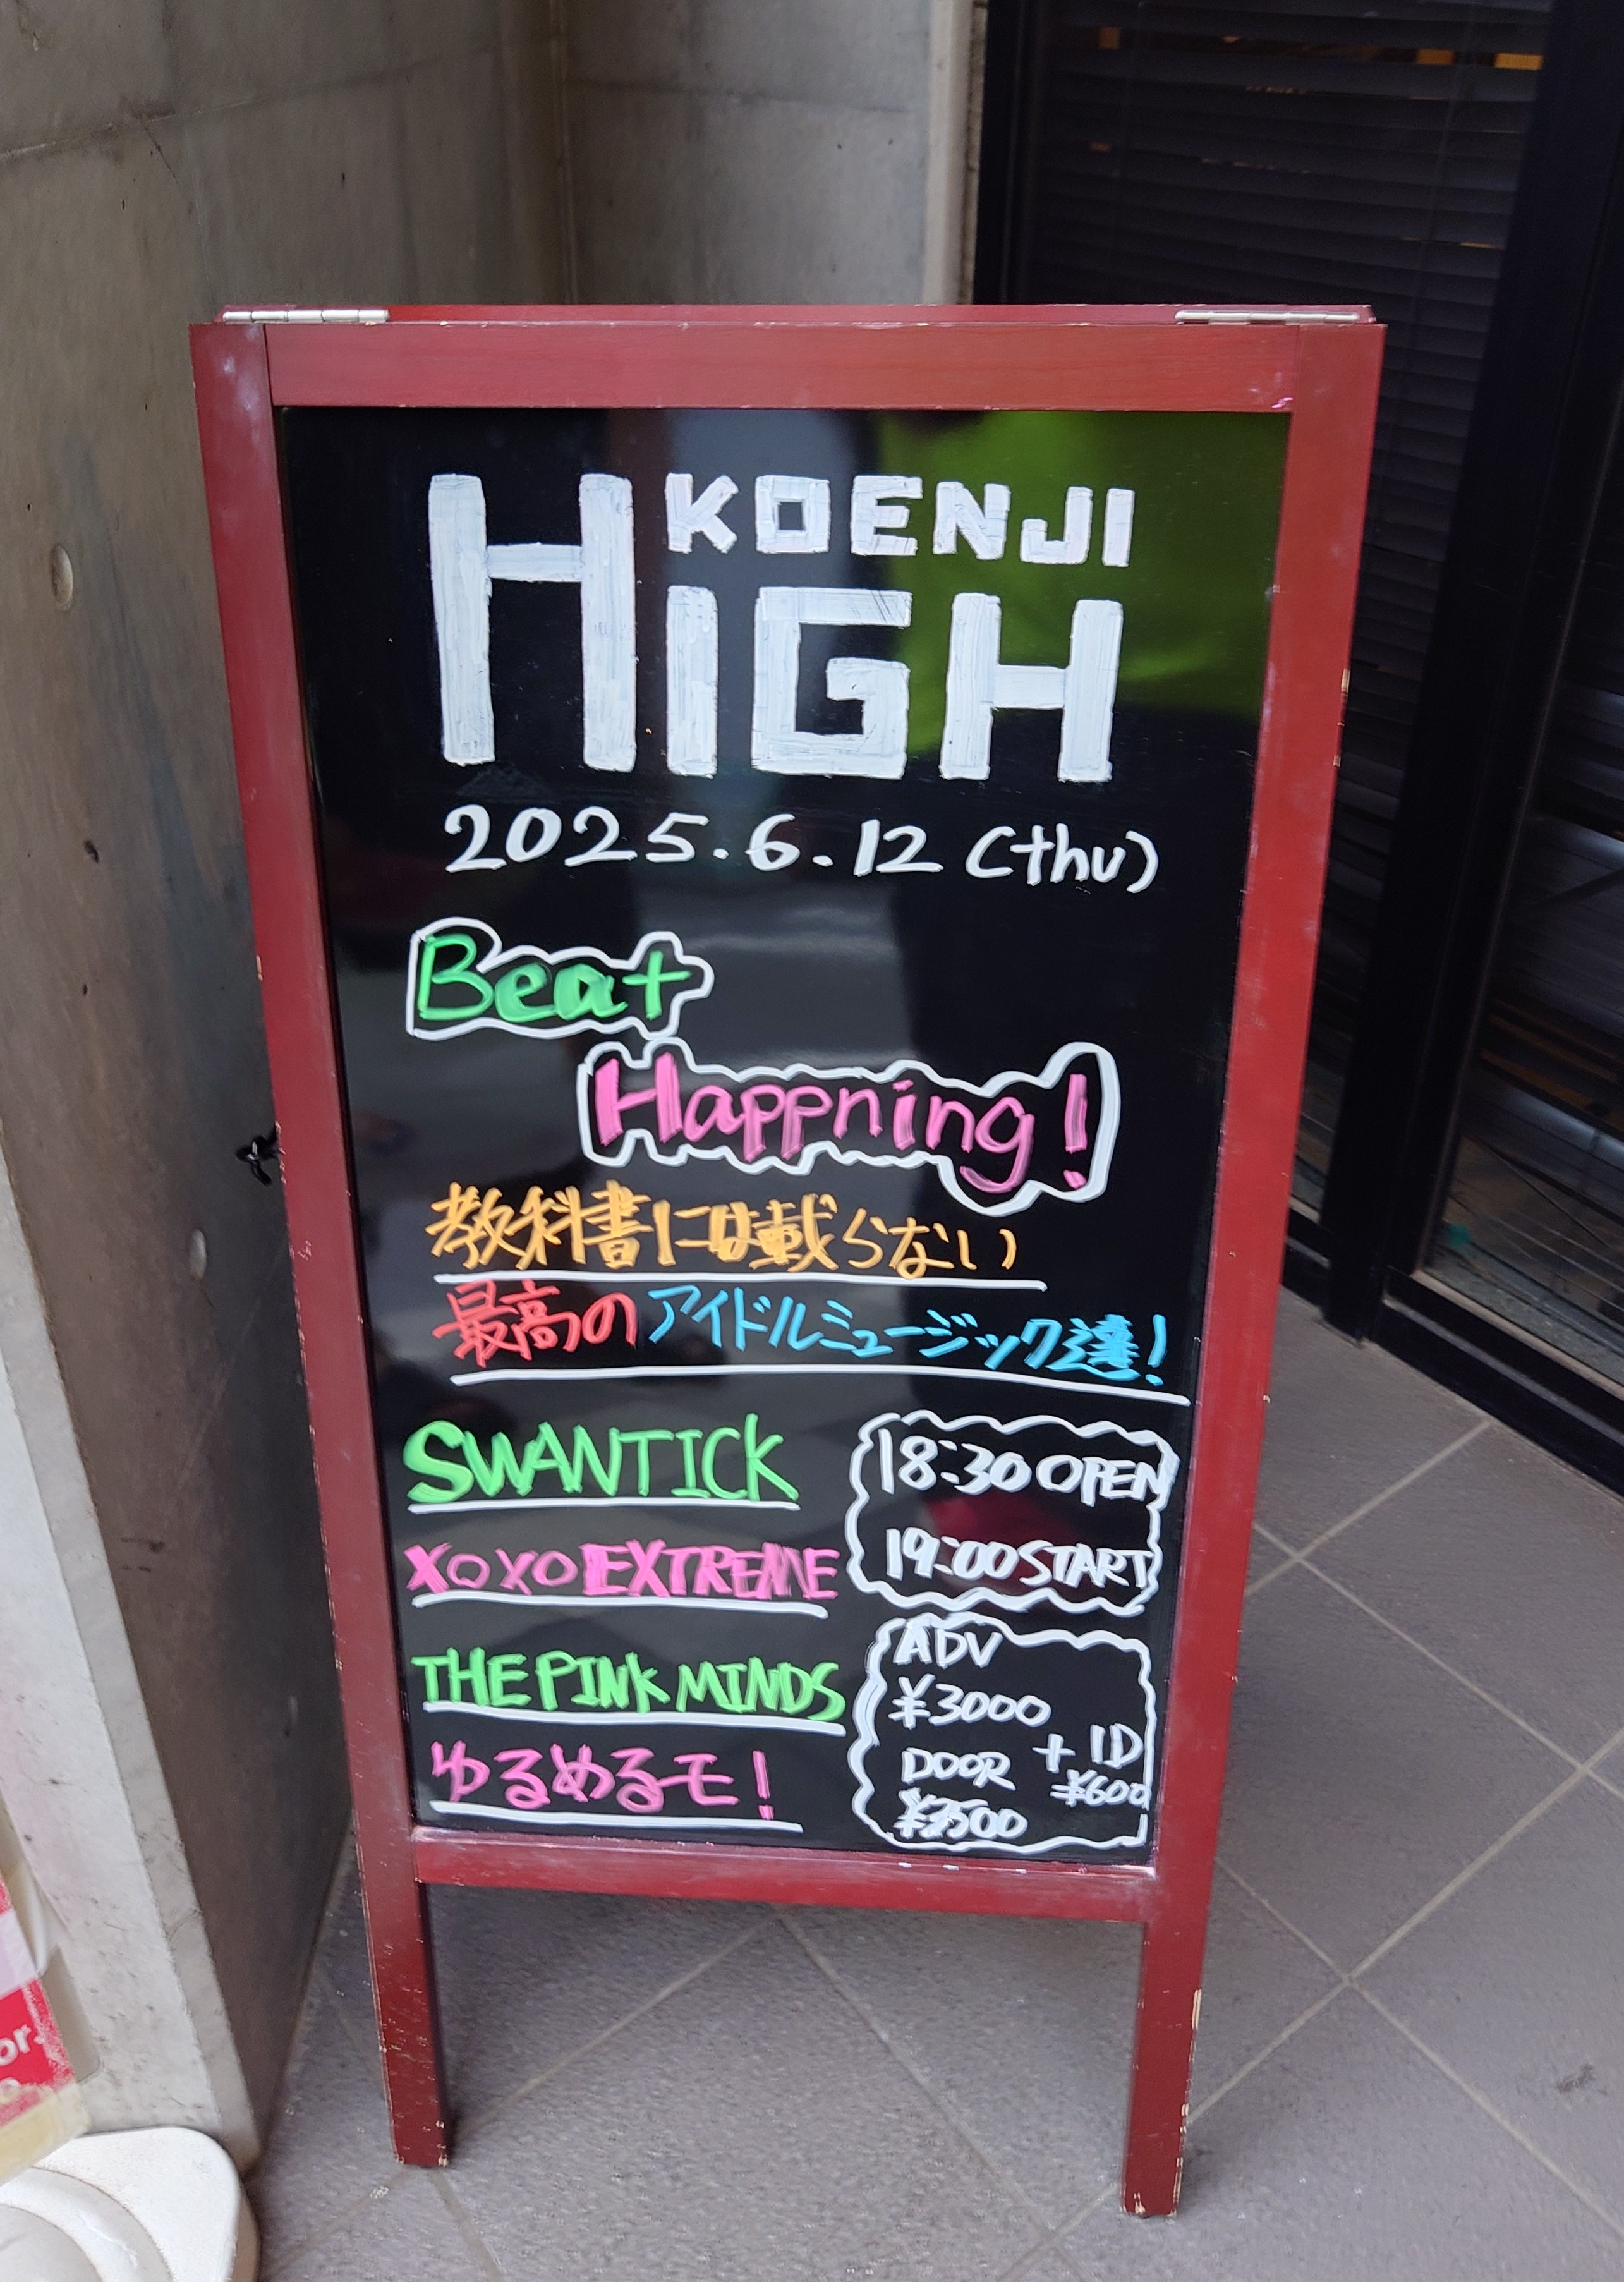 KOENJI
HIGH
2025.6.12 (thu)
Beat
Happning!
教科書には載らない
最高のアイドルミュージック達!
SWANTICK
xoxo EXTREME
THE PINK MINDS
ゆるめるモ!
18:30 OPEN
19:00 START
ADV
¥3000
DOOR
+1D
¥600
or